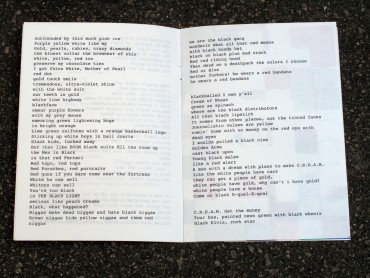 surrounded by this mock pion ice
Purple yellow white like my
Gold, pearls, rubies, crazy diamonds
the Kismet collar the brownest of this
white, yellow, red too
preserve my chocolate ties
I got China White, Mother of Pearl
red dot
gold tooth smile
tremendous, ultra-violet shine
with the white suit
our teeth in gold
white lose highway
blackface
smear purple flowers
with my grey mouse
smearing green lightening bugs
in bright orange
lime green uniforms with a orange basketball logo
Sticking up white boys in ball courts
Black kids, locked away
but that like NEON Black suits Ell the room up
the Men in Black
in that red Ferrari
Red tops, red tops
Red Porsches, red portraits
Red guns if you dare come near the fortress
White he can sell
Whiteys can sell
You're too black
in THE BLACK LIGHT
serious like peach Creams
Black, what happened?
Niggas make dead niggas and hate black niggas
Brown niggas kids yellow niggas and them red
niggas
we are the black gang
wonderin what all that red means
with black bandy hat
black on black plus red crack
Red red riding hood
Then dead as a deathpack the colors I choose
Red or Blue
mother fuckers! he wears a red bandana
he wears a red bandana
blackballed I own y'all
Cream of Wheat
green as spinach
where are the black distributors
All that black lipstick
It comes from other places, not the tinted faces
Journalistic tulips are yellow
comin' home with no money on the red eye with
dead eyes
I woulda pulled a black nine
Golden Arms
cast black open
Young black males
like a red alert
A man with a dream with plans to make C.R.E.A.M.
like the white people have cars
they run get a piece of gold,
white people have gold, why can't i have gold!
white people have a house
come on black E-qual-E-qual
C.R.E.A.M. Get the money
Tear Gas, painted neon green with black wheels
Black Elvis, rock star